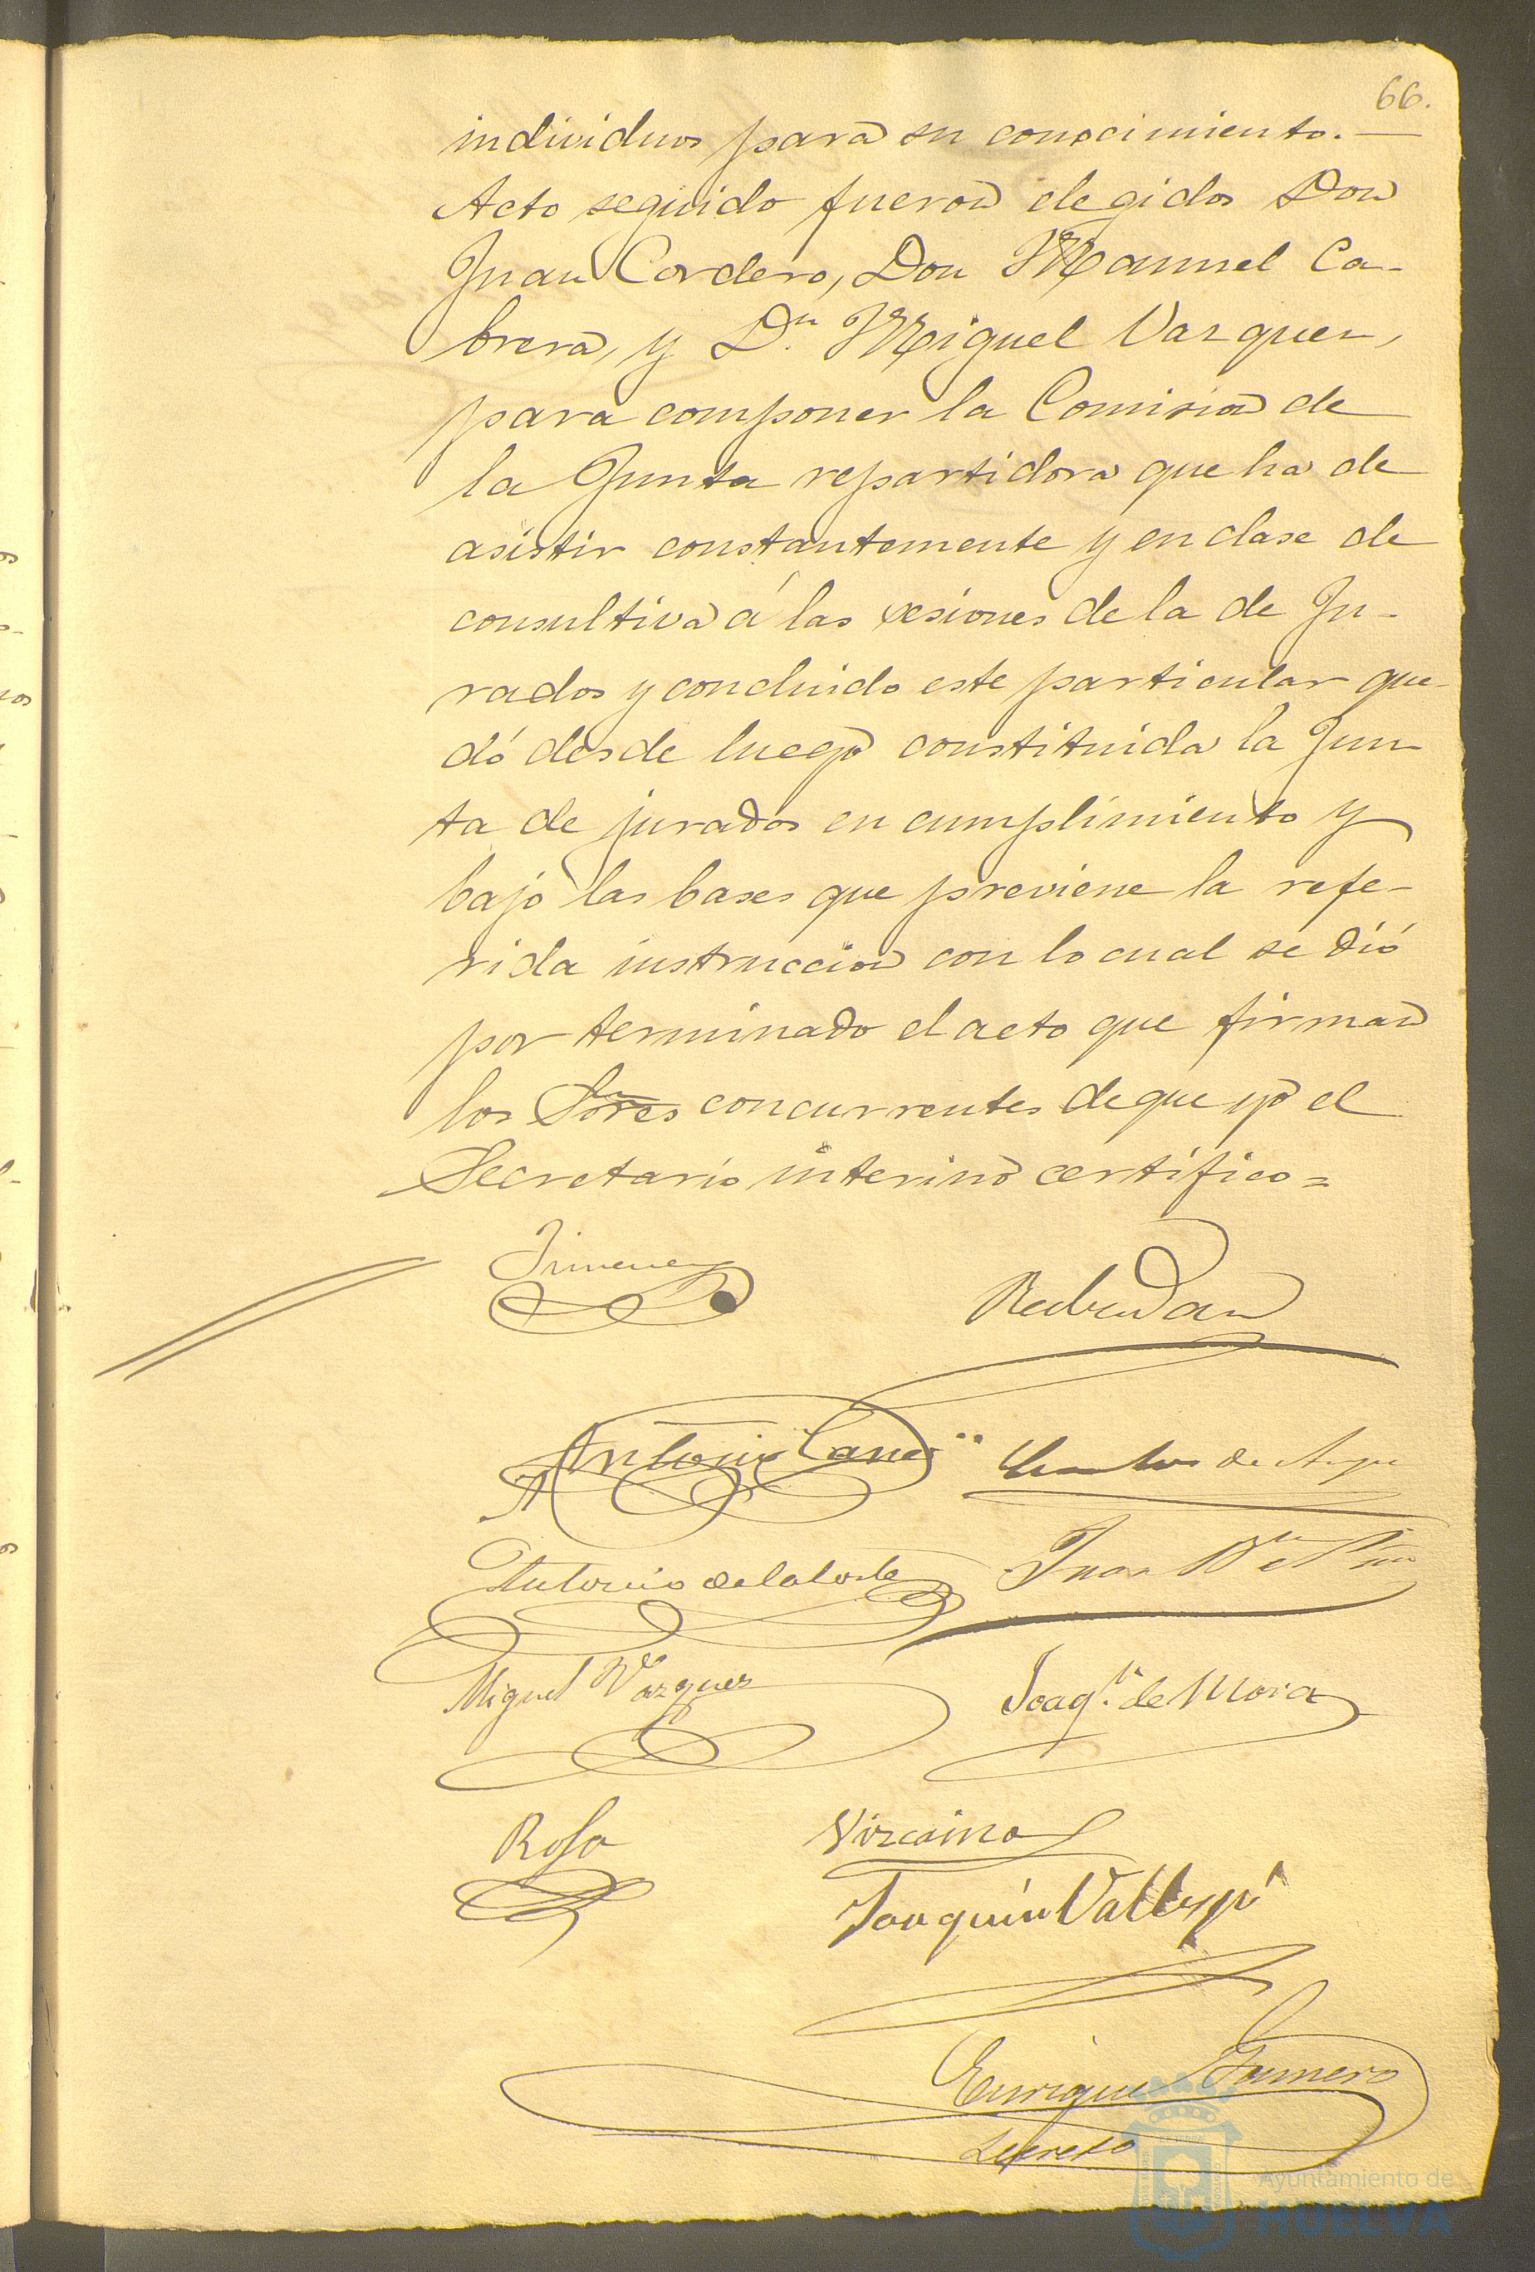 66.
individuos para su conocimiento.—
Acto seguido fueron elegidos Don
Juan Cordero, Don Manuel Ca-
brera, y D.n Miguel Vazquez,
para componer la Comision de
la Junta repartidora que ha de
asistir constantemente y en clase de
consultiva á las sesiones de la de Ju-
rados y concluido este particular que-
dó desde luego constituida la Jun-
ta de jurados en cumplimiento y
bajo las bases que previene la refe-
rida instruccion con lo cual se dió
por terminado el acto que firman
los Sres concurrentes de que yo el
Secretario interino certifico=
Jimenez
Antonio
de
Antonio de la Corte
Juan
Miguel Vazquez
Joaq.n de Mora
Rofa
Vizcaino
Joaquin
Enrique
Secreto
Ayuntamiento de
HUELVA